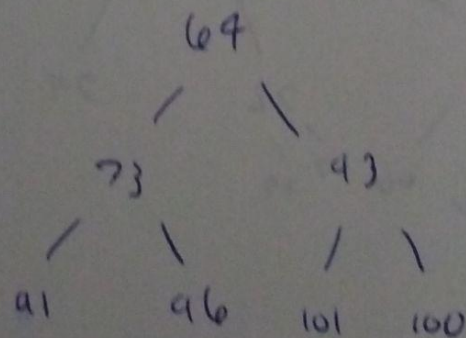 69
73 93
91 96 101 100